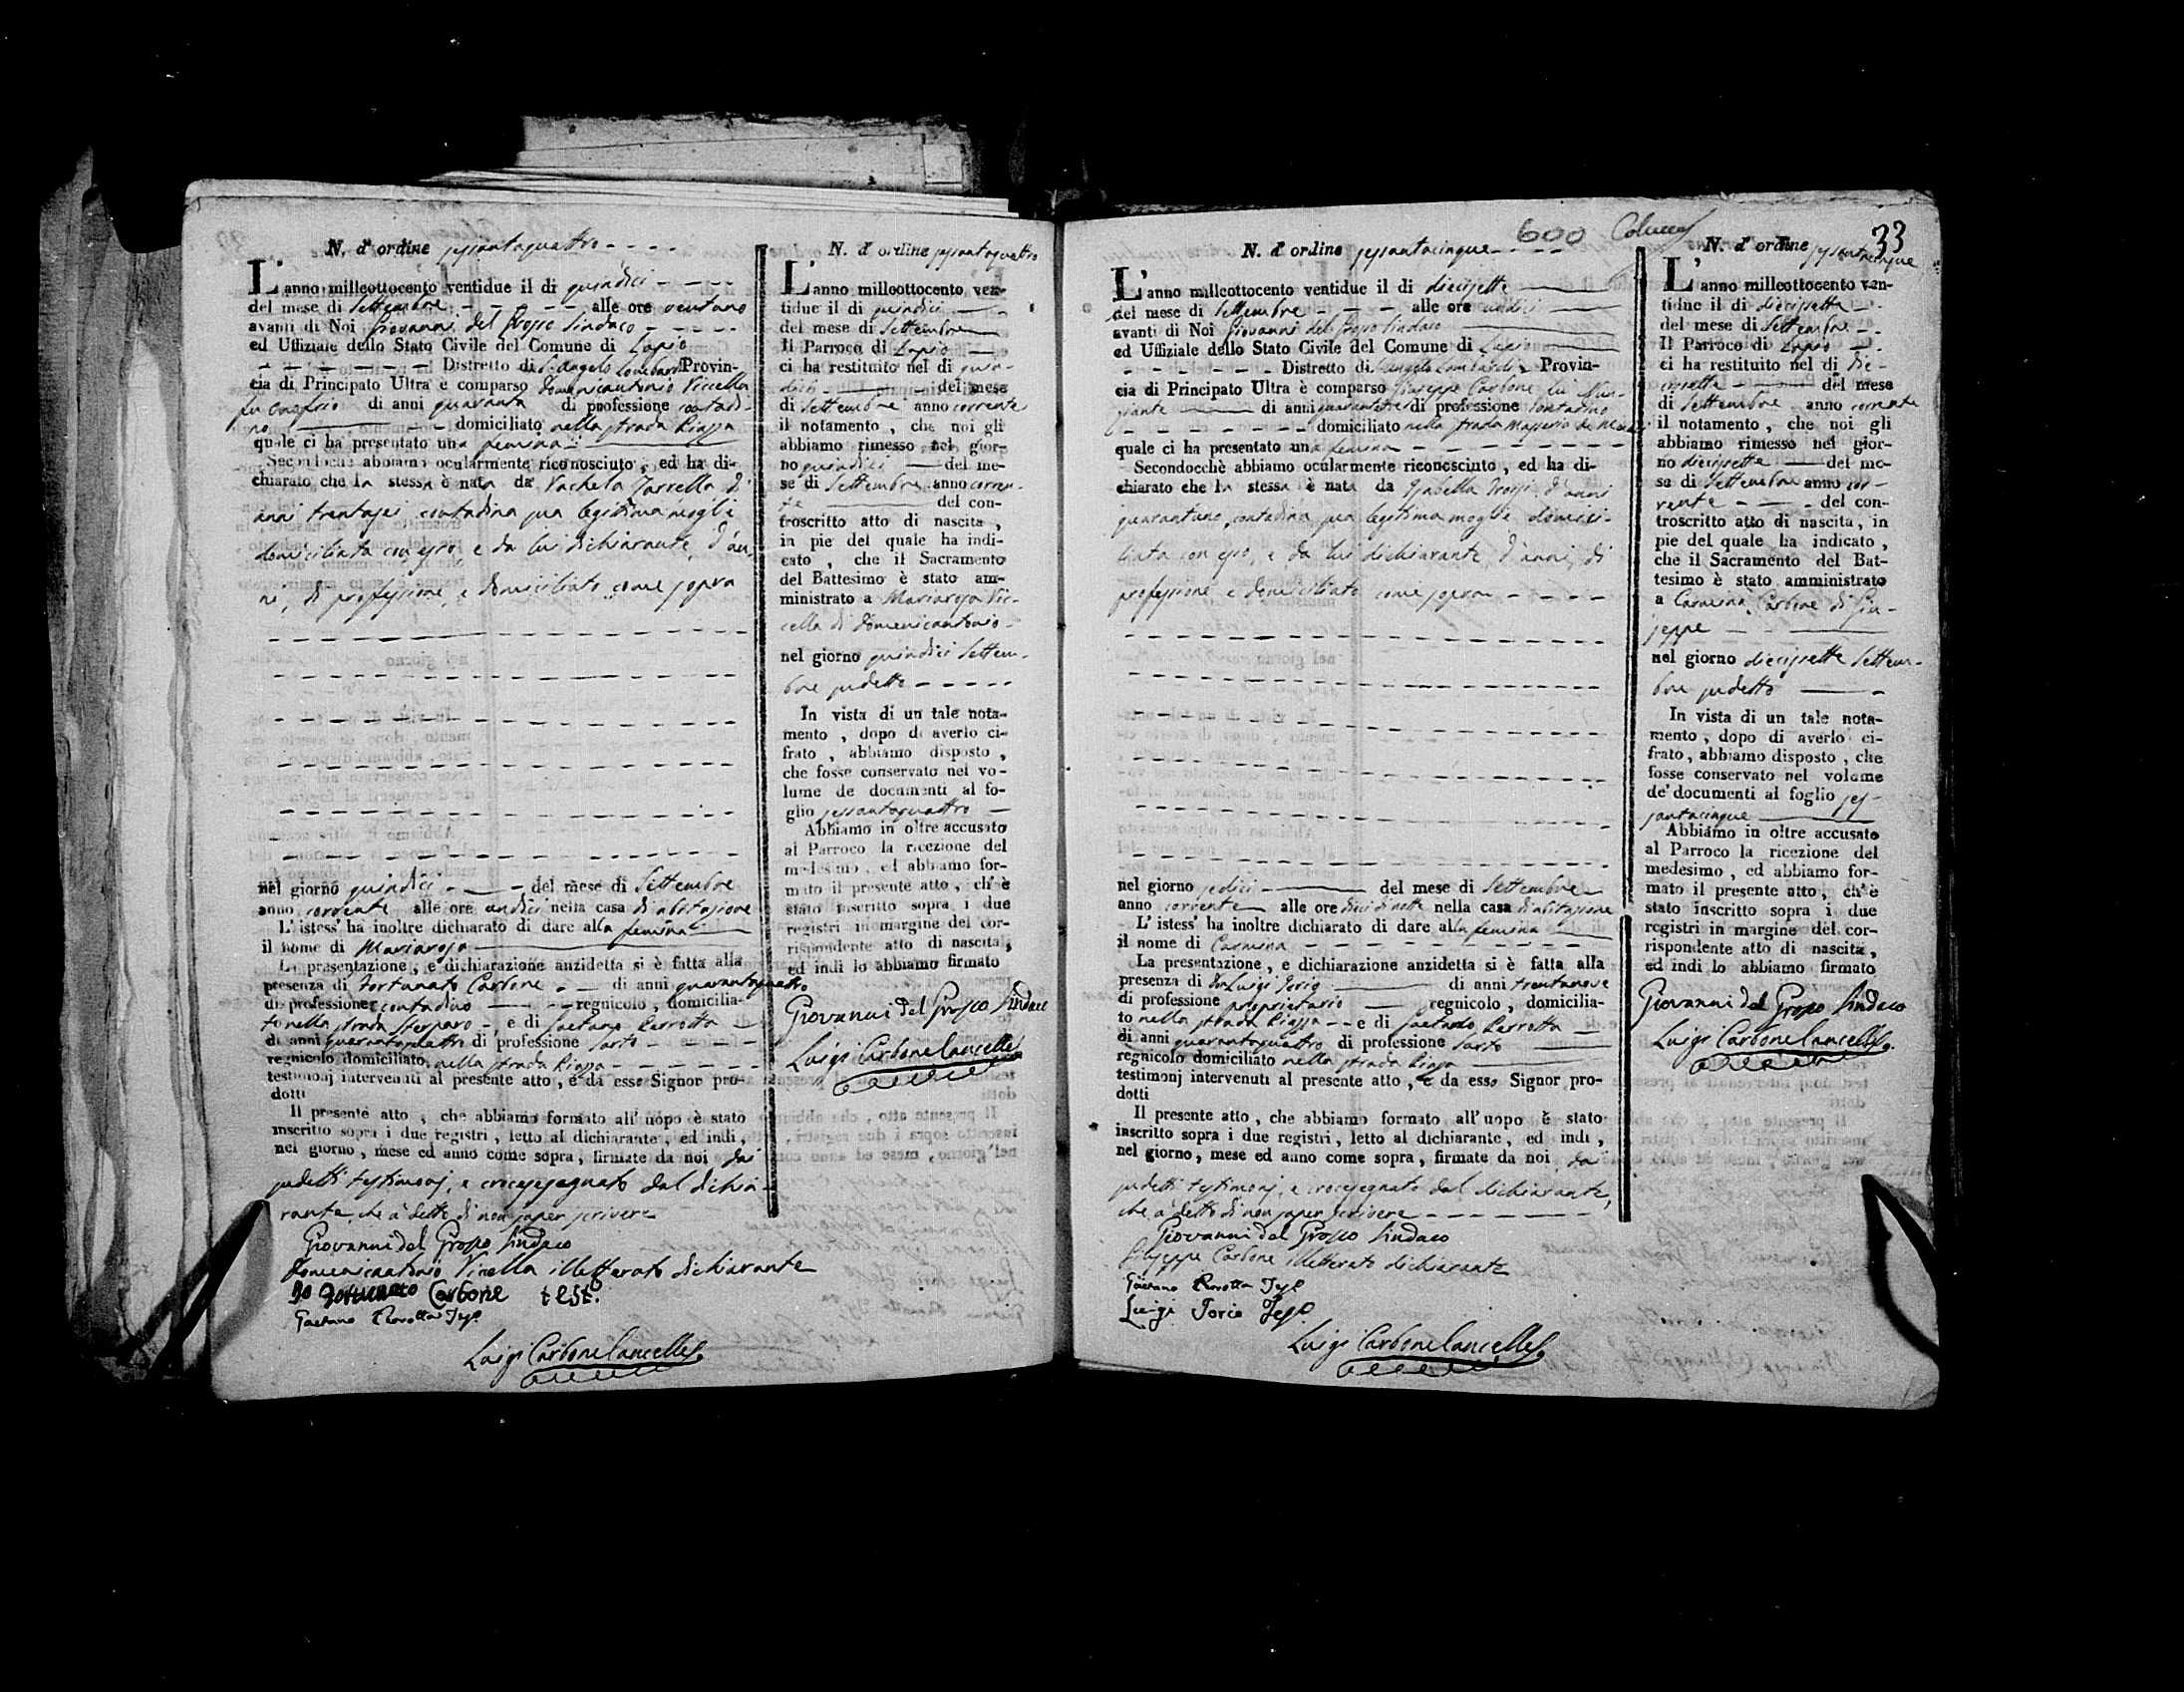 N. d'ordine sessantaquattro
L'anno milleottocento ventidue il di quindici
del mese di Settembre alle ore ventuno
avanti di Noi Giovanni del Grosso Sindaco
ed Uffiziale dello Stato Civile del Comune di Lapio
Distretto di S. Angelo Lombardi Provin-
cia di Principato Ultra è comparso Domenicantonio Vicella
fu Onofrio di anni quaranta di professione contadi-
no domiciliato nella strada Piazza
quale ci ha presentato una femina
Secondochè abbiamo ocularmente riconosciuto, ed ha di-
chiarato che la stessa è nata da Rachela Zarrella di
anni trentasei contadina sua legittima moglie
domiciliata con esso, e da lui dichiarante, d'an-
ni, di professione, e domiciliato come sopra
nel giorno quindici del mese di Settembre
anno corrente alle ore undici nella casa di abitazione
L'istess' ha inoltre dichiarato di dare alla femina
il nome di Mariarosa
La presentazione, e dichiarazione anzidetta si è fatta alla
presenza di Fortunato Carbone di anni quarantaquattro
di professione contadino regnicolo, domicilia-
to nella strada e di Gaetano Perrotta
di anni quarantaquattro di professione Sarto
regnicolo domiciliato nella strada Piazza
testimonj intervenuti al presente atto, e da esso Signor pro-
dotti
Il presente atto, che abbiamo formato all'uopo è stato
inscritto sopra i due registri, letto al dichiarante, ed indi,
nel giorno, mese ed anno come sopra, firmate da noi dai
sudetti testimonj, e crocesegnato dal dichia-
rante, che à detto di non saper scrivere
Giovanni del Grosso Sindaco
Domenicantonio Vicella illetterato dichiarante
Io Fortunato Carbone test.o
Gaetano Perrotta Tes.o
Luigi Carbone Cancelle.
N. d'ordine sessantaquattro
L'anno milleottocento ven-
tidue il di quindici
del mese di Settembre
Il Parroco di Lapio
ci ha restituito nel di quin-
dici del mese
di Settembre anno corrente
il notamento, che noi gli
abbiamo rimesso nel gior-
no quindici del me-
se di Settembre anno corren-
te del con-
troscritto atto di nascita,
in pie del quale ha indi-
cato, che il Sacramento
del Battesimo è stato am-
ministrato a Mariarosa Vic-
cella di Domenicantonio
nel giorno quindici Settem-
bre sudetto
In vista di un tale nota-
mento, dopo di averlo ci-
frato, abbiamo disposto,
che fosse conservato nel vo-
lume de documenti al fo-
glio sessantaquattro
Abbiamo in oltre accusato
al Parroco la ricezione del
medesimo, ed abbiamo for-
mato il presente atto, ch'è
stato inscritto sopra i due
registri in margine del cor-
rispondente atto di nascita,
ed indi lo abbiamo firmato
Giovanni del Grosso Sindaco
Luigi Carbone Cancelle.
600
33
N. d'ordine sessantacinque
L'anno milleottocento ventidue il di diecisette
del mese di Settembre alle ore undici
avanti di Noi Giovanni del Grosso Sindaco
ed Uffiziale dello Stato Civile del Comune di Lapio
Distretto di S. Angelo Lombardi Provin-
cia di Principato Ultra è comparso Giuseppe Carbone fu Nun-
ziante di anni quarantatre di professione contadino
domiciliato nella strada
quale ci ha presentato una femina
Secondocchè abbiamo ocularmente riconosciuto, ed ha di-
chiarato che la stessa è nata da Isabella d'anni
quarantuno, contadina sua legitima moglie domici-
liata con esso, e da lui dichiarante, d'anni, di
professione e domiciliato come sopra
nel giorno sedici del mese di Settembre
anno corrente alle ore dieci di notte nella casa di abitazione
L'istess' ha inoltre dichiarato di dare alla femina
il nome di Carmina
La presentazione, e dichiarazione anzidetta si è fatta alla
presenza di Don Luigi Forio di anni trentanove
di professione proprietario regnicolo, domicilia-
to nella strada Piazza e di Gaetano Perrotta
di anni quarantaquattro di professione Sarto
regnicolo domiciliato nella strada Piazza
testimonj intervenuti al presente atto, e da esso Signor pro-
dotti
Il presente atto, che abbiamo formato all'uopo è stato
inscritto sopra i due registri, letto al dichiarante, ed indi,
nel giorno, mese ed anno come sopra, firmate da noi dai
sudetti testimonj, e crocesegnato dal dichiarante,
che à detto di non saper scrivere
Giovanni del Grosso Sindaco
Giuseppe Carbone illetterato dichiarante
Gaetano Perrotta Tes.o
Luigi Forio Tes.o
Luigi Carbone Cancelle.
N. d'ordine sessantacinque
L'anno milleottocento ven-
tidue il di diecisette
del mese di Settembre
Il Parroco di Lapio
ci ha restituito nel di die-
cisette del mese
di Settembre anno corrente
il notamento, che noi gli
abbiamo rimesso nel gior-
no diecisette del me-
se di Settembre anno cor-
rente del con-
troscritto atto di nascita, in
pie del quale ha indicato,
che il Sacramento del Bat-
tesimo è stato amministrato
a Carmina Carbone di Giu-
seppe
nel giorno diecisette Settem-
bre sudetto
In vista di un tale nota-
mento, dopo di averlo ci-
frato, abbiamo disposto, che
fosse conservato nel volume
de' documenti al foglio ses-
santacinque
Abbiamo in oltre accusato
al Parroco la ricezione del
medesimo, ed abbiamo for-
mato il presente atto, ch'è
stato inscritto sopra i due
registri in margine del cor-
rispondente atto di nascita,
ed indi lo abbiamo firmato
Giovanni del Grosso Sindaco
Luigi Carbone Cancelle.